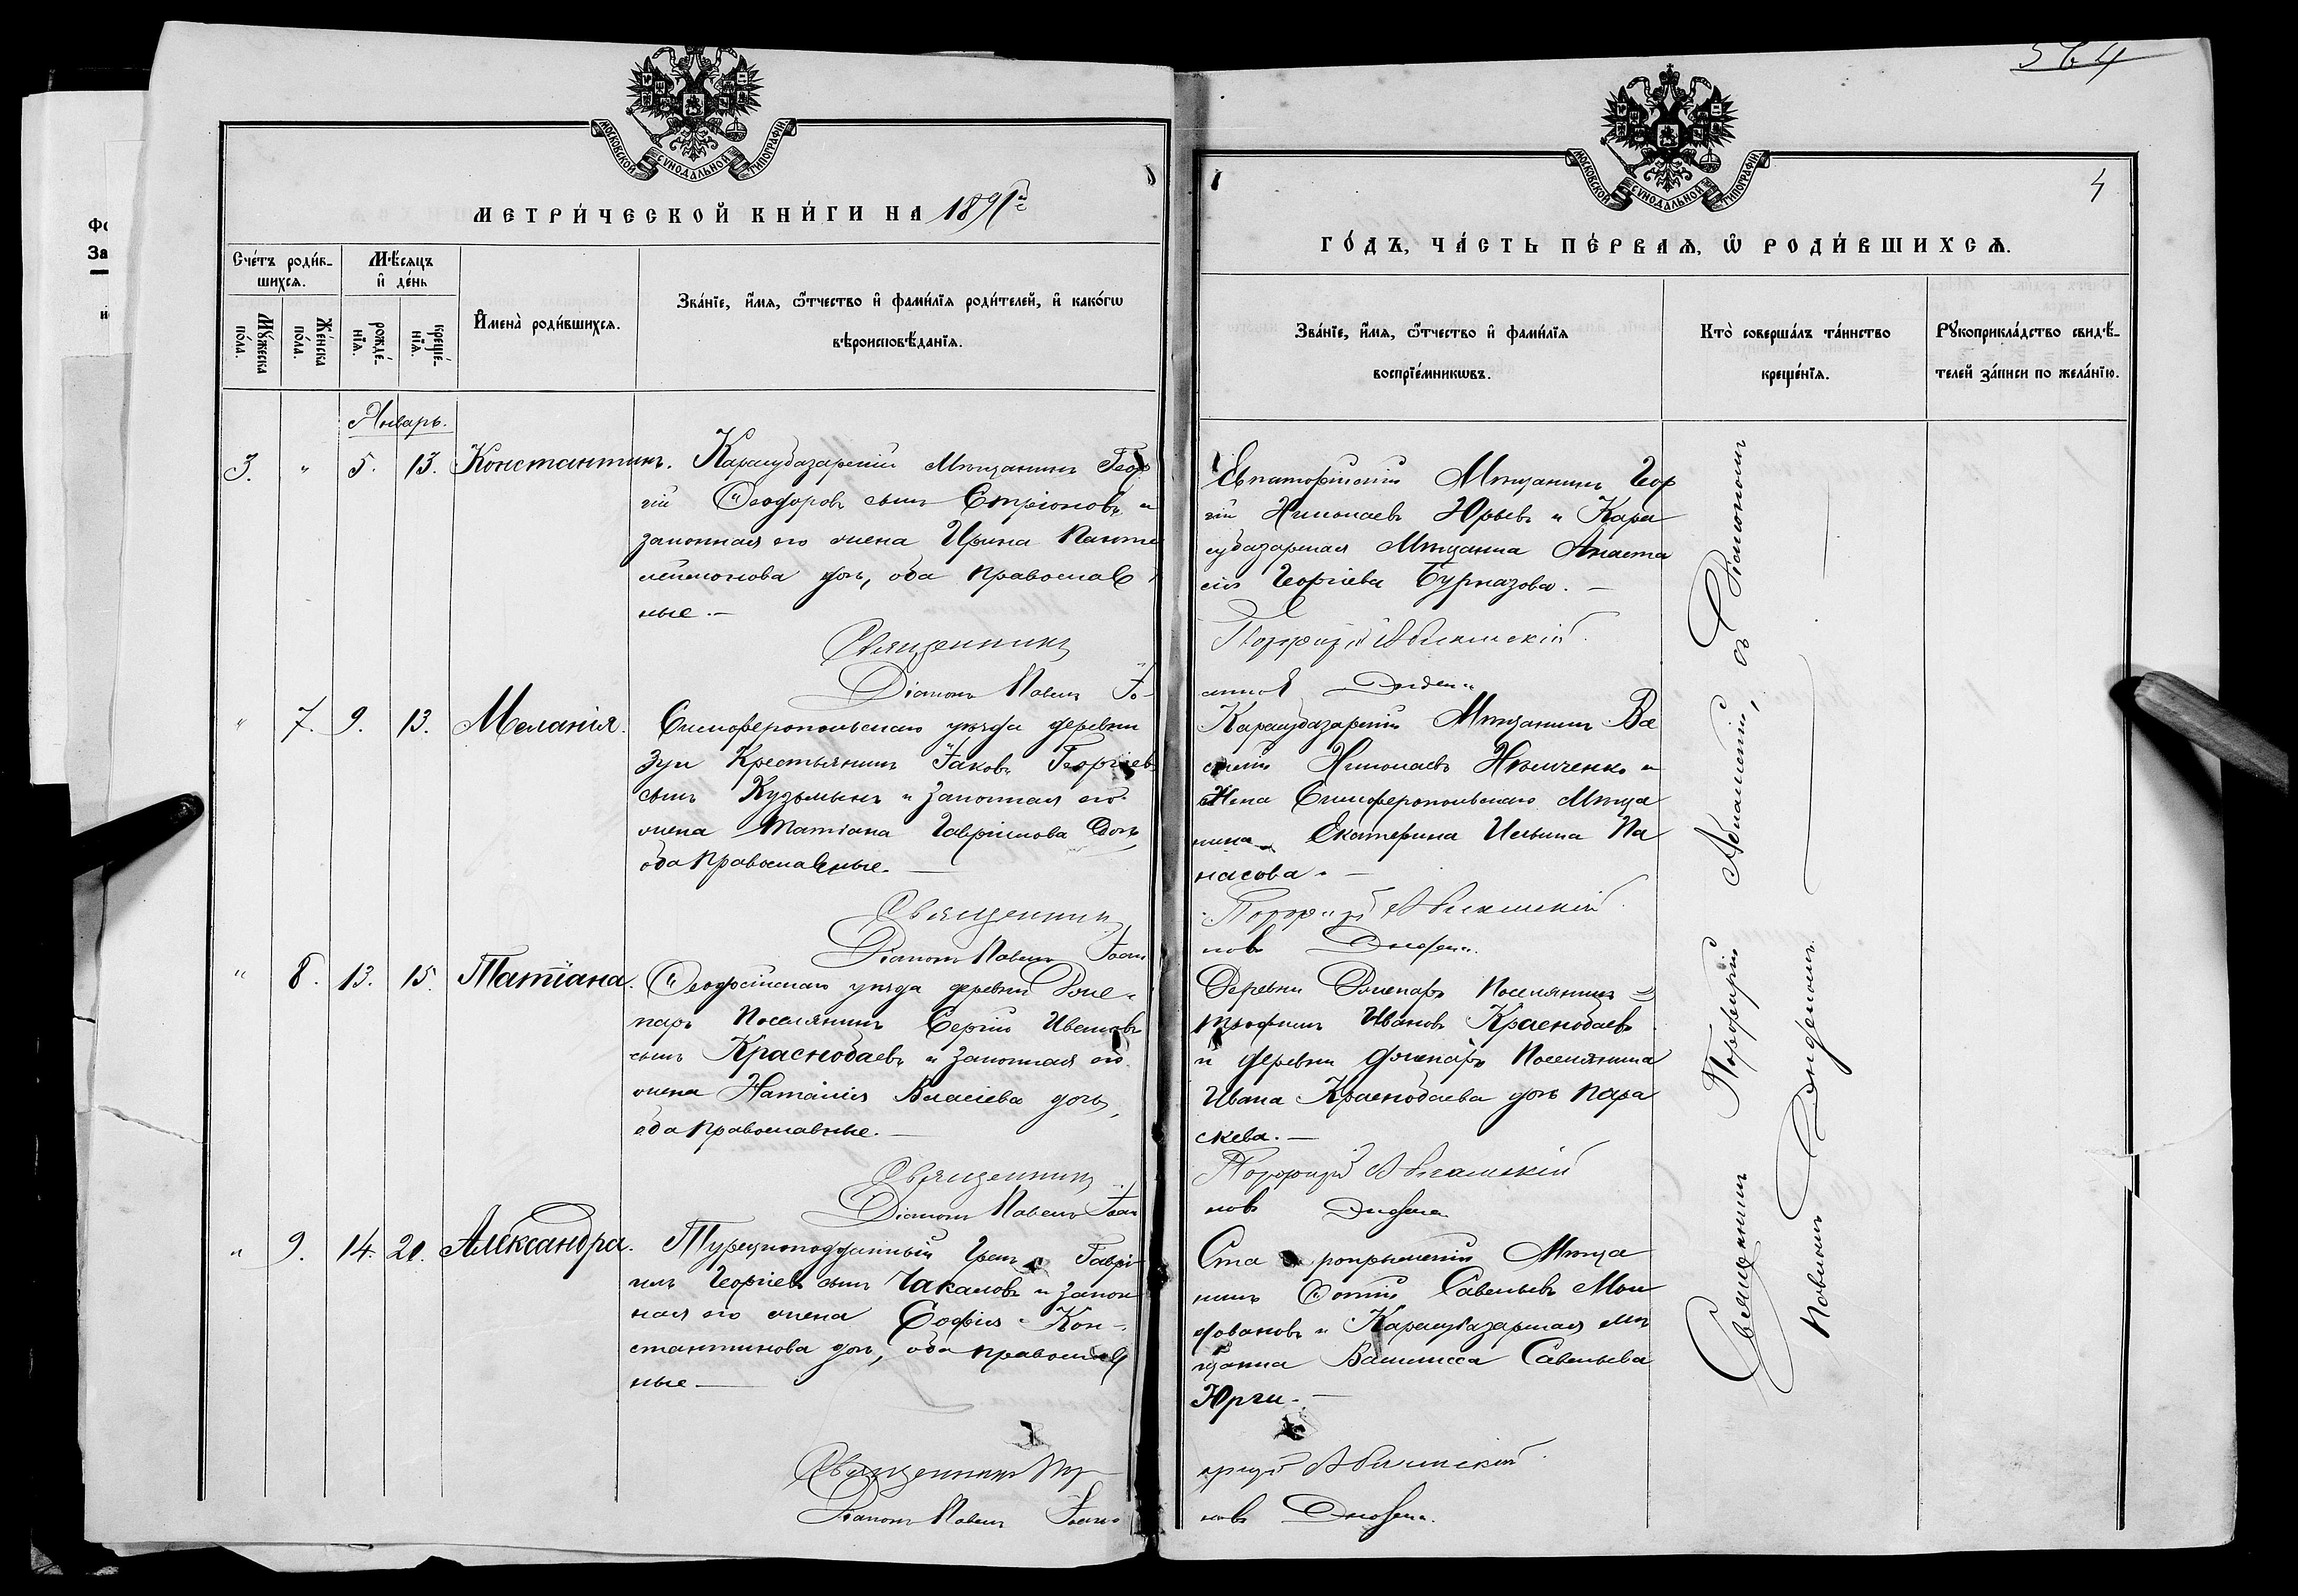 564
МОСКОВСКОЙ СУНОДАЛЬНОЙ ТИПОГРАФІИ.
МЕТРИ́ЧЕСКОЙ КНИ́ГИ НА 1891
Сче́тъ роди́в-
шихся.
Мѣ́сяцъ
и҆ де́нь
Мꙋ́жеска
по́ла.
Же́нска
по́ла.
рожде́-
нїѧ.
креще́-
нїѧ.
И҆мена̀ роди́вшихсѧ.
Зва́нїе, и҆́мѧ, ѻ҆́тчество и҆ фами́лїѧ роди́телей, и҆ како́гѡ
вѣроисповѣ́данїѧ.
Январь.
3. " 5. 13. Константинъ.
Карасубазарскій Мѣщанинъ Геор
гій Ѳеодоровъ сынъ Стріоновъ и
законная его жена Ирина Панте
леимонова дочь, оба православ
ные.—
Священникъ
Діаконъ Павелъ Іо-
" 7. 9. 13. Меланія.
Симферопольскаго уѣзда деревни
Зуи Крестьянинъ Іаковъ Георгіевъ
сынъ Кузьминъ и законная его
жена Татіана Гавріилова дочь,
оба православные.—
Священникъ
Діаконъ Павелъ Іоан
" 8. 13. 15. Татіана.
Ѳеодосійскаго уѣзда деревни
Поселянинъ Сергій Ивановъ
сынъ Краснобаевъ и законная его
жена Наталія Власіева дочь,
оба православные.—
Священникъ
Діаконъ Павелъ Іоан
" 9. 14. 20. Александра.
Турецкоподданный Грекъ Гаврі
илъ Георгіевъ сынъ Чакаловъ и закон
ная его жена Софія Кон-
стантинова дочь, оба православ
ные—
Священникъ Пор
Діаконъ Павелъ Іоан
МОСКОВСКОЙ СУНОДАЛЬНОЙ ТИПОГРАФІИ.
4
ГО́ДЪ, ЧА́СТЬ ПЕ́РВАѦ, Ѡ҆ РОДИ́ВШИХСѦ.
Зва́нїе, и҆́мѧ, ѻ҆́тчество и҆ фами́лїѧ
воспрїе́мникѡвъ.
Кто̀ соверша́лъ та́инство
креще́нїѧ.
Рꙋкоприкла́дство свидѣ́-
телей за́писи по жела́нїю.
Евпаторійскій Мѣщанинъ Геор
гій Николаевъ Юрьевъ и Кара
субазарская Мѣщанка Анаста
сія Георгіева Бурназова.—
Порфирій
Карасубазарскій Мѣщанинъ Ва
силій Николаевъ Нѣмченко и
жена Симферопольскаго Мѣща
нина Екатерина Ильина Па
насова.—
Порфирій
новъ
Деревни Поселянинъ
Трофимъ Ивановъ Краснобаевъ
и деревни Поселянина
Ивана Краснобаева дочь Пара
скева.—
Порфирій
новъ
Старокрымскій Мѣща
нинъ Ѳотій Савельевъ Мол
довановъ и Карасубазарская Мѣ
щанка Василисса Савельева
Юрги.—
фирій
новъ
Священникъ Порфирій, съ Діакономъ
Павломъ